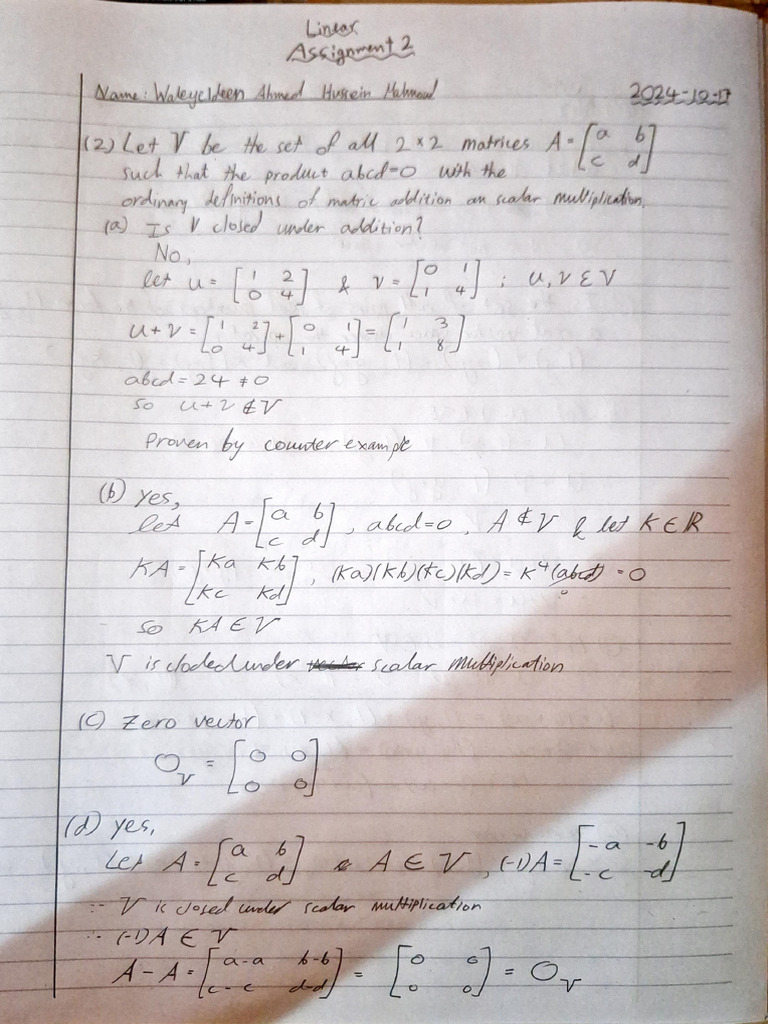 Linear
Assignment 2
Name: Waleyeldeen Ahmed Hussein Mahmoud 2024-12-17
(2) Let V be the set of all 2*2 matrices A = [a b; c d]
such that the product abcd=0 with the
ordinary definitions of matric addition an scalar multiplication.
(a) Is V closed under addition?
No,
let u = [1 2; 0 4] & v = [0 1; 1 4] ; u, v ∈ V
u+v = [1 2; 0 4] + [0 1; 1 4] = [1 3; 1 8]
abcd = 24 ≠ 0
so u+2 ∉ V
Proven by counter example
(b) yes,
let A = [a b; c d], abcd=0, A ∉ V & let K ∈ ℝ
KA = [Ka Kb; Kc Kd], (Ka)(Kb)(Kc)(Kd) = K⁴(abcd) = 0
0
so KA ∈ V
V is closed under scalar multiplication
(c) Zero vector
O_V = [0 0; 0 0]
(d) yes,
Let A = [a b; c d] & A ∈ V, (-1)A = [-a -b; -c -d]
∵ V is closed under scalar multiplication
∴ (-1)A ∈ V
A-A = [a-a b-b; c-c d-d] = [0 0; 0 0] = O_V